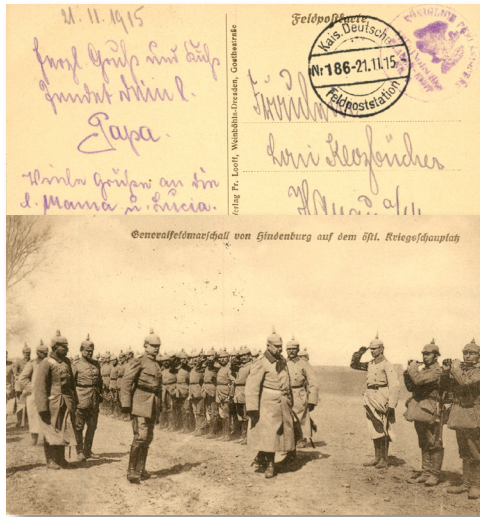 21. 11. 1915
Herzl. Gruß und Kuß
sendet Dein l.
Papa.
Viele Grüße an die
l. Mama u. Lucia.
Verlag Pr. Looff, Weinböhla-Dresden, Goethestraße
Feldpostkarte
Kais. Deutsche
Nr 186-21.11.15
Feldpoststation
Fräulein
Hanau a/M
Generalfeldmarschall von Hindenburg auf dem östl. Kriegsschauplatz